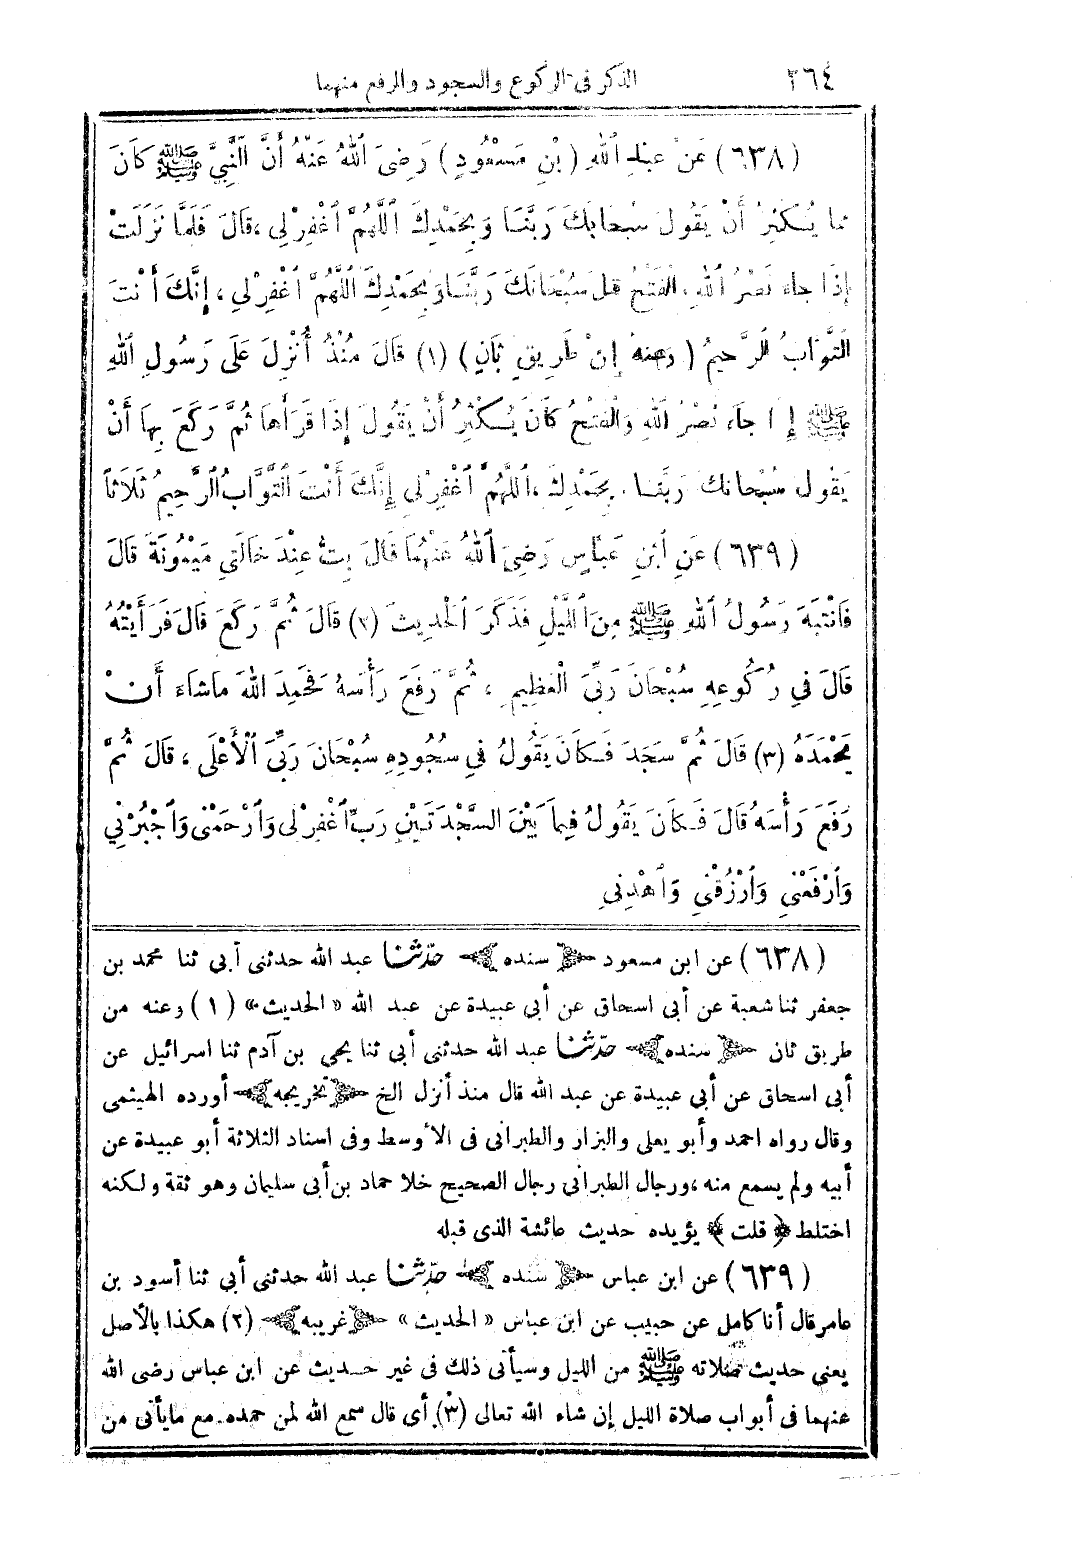 ٢٦٤ الذكر في الركوع والسجود والرفع منهما
(٦٣٨) عَنْ عَبْدِ اللهِ (بْنِ مَسْعُودٍ) رَضِيَ اللهُ عَنْهُ أَنَّ النَّبِيَّ ﷺ كَانَ
مما يُكْثِرُ أَنْ يَقُولَ سُبْحَانَكَ رَبَّنَا وَبِحَمْدِكَ اللَّهُمَّ اغْفِرْ لِي، قَالَ فَلَمَّا نَزَلَتْ
إِذَا جاء نَصْرُ اللهِ وَالْفَتْحُ قال سُبْحَانَكَ رَبَّنَا وَبِحَمْدِكَ اللَّهُمَّ اغْفِرْ لِي، إِنَّكَ أَنْتَ
التَّوَّابُ الرَّحِيمُ (وعنه من طَرِيقٍ ثَانٍ) (١) قَالَ مُنْذُ أُنْزِلَ عَلَى رَسُولِ اللهِ
ﷺ إِذَا جَاءَ نَصْرُ اللهِ وَالْفَتْحُ كَانَ يُكْثِرُ أَنْ يَقُولَ إِذَا قَرَأَهَا ثُمَّ رَكَعَ بِهَا أَنْ
يَقُولَ سُبْحَانَكَ رَبَّنَا وَبِحَمْدِكَ، اللَّهُمَّ اغْفِرْ لِي إِنَّكَ أَنْتَ التَّوَّابُ الرَّحِيمُ ثَلَاثًا
(٦٣٩) عَنِ ابْنِ عَبَّاسٍ رَضِيَ اللهُ عَنْهُمَا قَالَ بِتُّ عِنْدَ خَالَتِي مَيْمُونَةَ قَالَ
فَانْتَبَهَ رَسُولُ اللهِ ﷺ مِنَ اللَّيْلِ فَذَكَرَ الْحَدِيثَ (٢) قَالَ ثُمَّ رَكَعَ قَالَ فَرَأَيْتُهُ
قَالَ فِي رُكُوعِهِ سُبْحَانَ رَبِّيَ الْعَظِيمِ، ثُمَّ رَفَعَ رَأْسَهُ فَحَمِدَ اللهَ مَا شَاءَ أَنْ
يَحْمَدَهُ (٣) قَالَ ثُمَّ سَجَدَ فَكَانَ يَقُولُ فِي سُجُودِهِ سُبْحَانَ رَبِّيَ الْأَعْلَى، قَالَ ثُمَّ
رَفَعَ رَأْسَهُ قَالَ فَكَانَ يَقُولُ فِيمَا بَيْنَ السَّجْدَتَيْنِ رَبِّ اغْفِرْ لِي وَارْحَمْنِي وَاجْبُرْنِي
وَارْفَعْنِي وَارْزُقْنِي وَاهْدِنِي
(٦٣٨) عن ابن مسعود ﴿سنده﴾ حدّثنا عبد الله حدثنى أبى ثنا محمد بن
جعفر ثنا شعبة عن أبى اسحاق عن أبى عبيدة عن عبد الله «الحديث» (١) وعنه من
طريق ثان ﴿سنده﴾ حدّثنا عبد الله حدثنى أبي ثنا يحي بن آدم ثنا اسرائيل عن
أبى اسحاق عن أبي عبيدة عن عبد الله قال منذ أنزل الخ ﴿تخريجه﴾ أورده الهيثمى
وقال رواه احمد وأبو يعلى والبزار والطبرانى فى الأوسط وفى اسناد الثلاثة أبو عبيدة عن
أبيه ولم يسمع منه، ورجال الطبرانى رجال الصحيح خلا حماد بن أبى سليمان وهو ثقة ولكنه
اختلط ﴿قلت﴾ يؤيده حديث عائشة الذى قبله
(٦٣٩) عن ابن عباس ﴿سنده﴾ حدّثنا عبد الله حدثنى أبي ثنا أسود بن
عامر قال أنا كامل عن حبيب عن ابن عباس «الحديث» ﴿غريبه﴾ (٢) هكذا بالأصل
يعني حديث صلاته ﷺ من الليل وسيأتى ذلك فى غير حديث عن ابن عباس رضى الله
عنهما فى أبواب صلاة الليل إن شاء الله تعالى (٣) أى قال سمع الله لمن حمده مع ما يأتى من